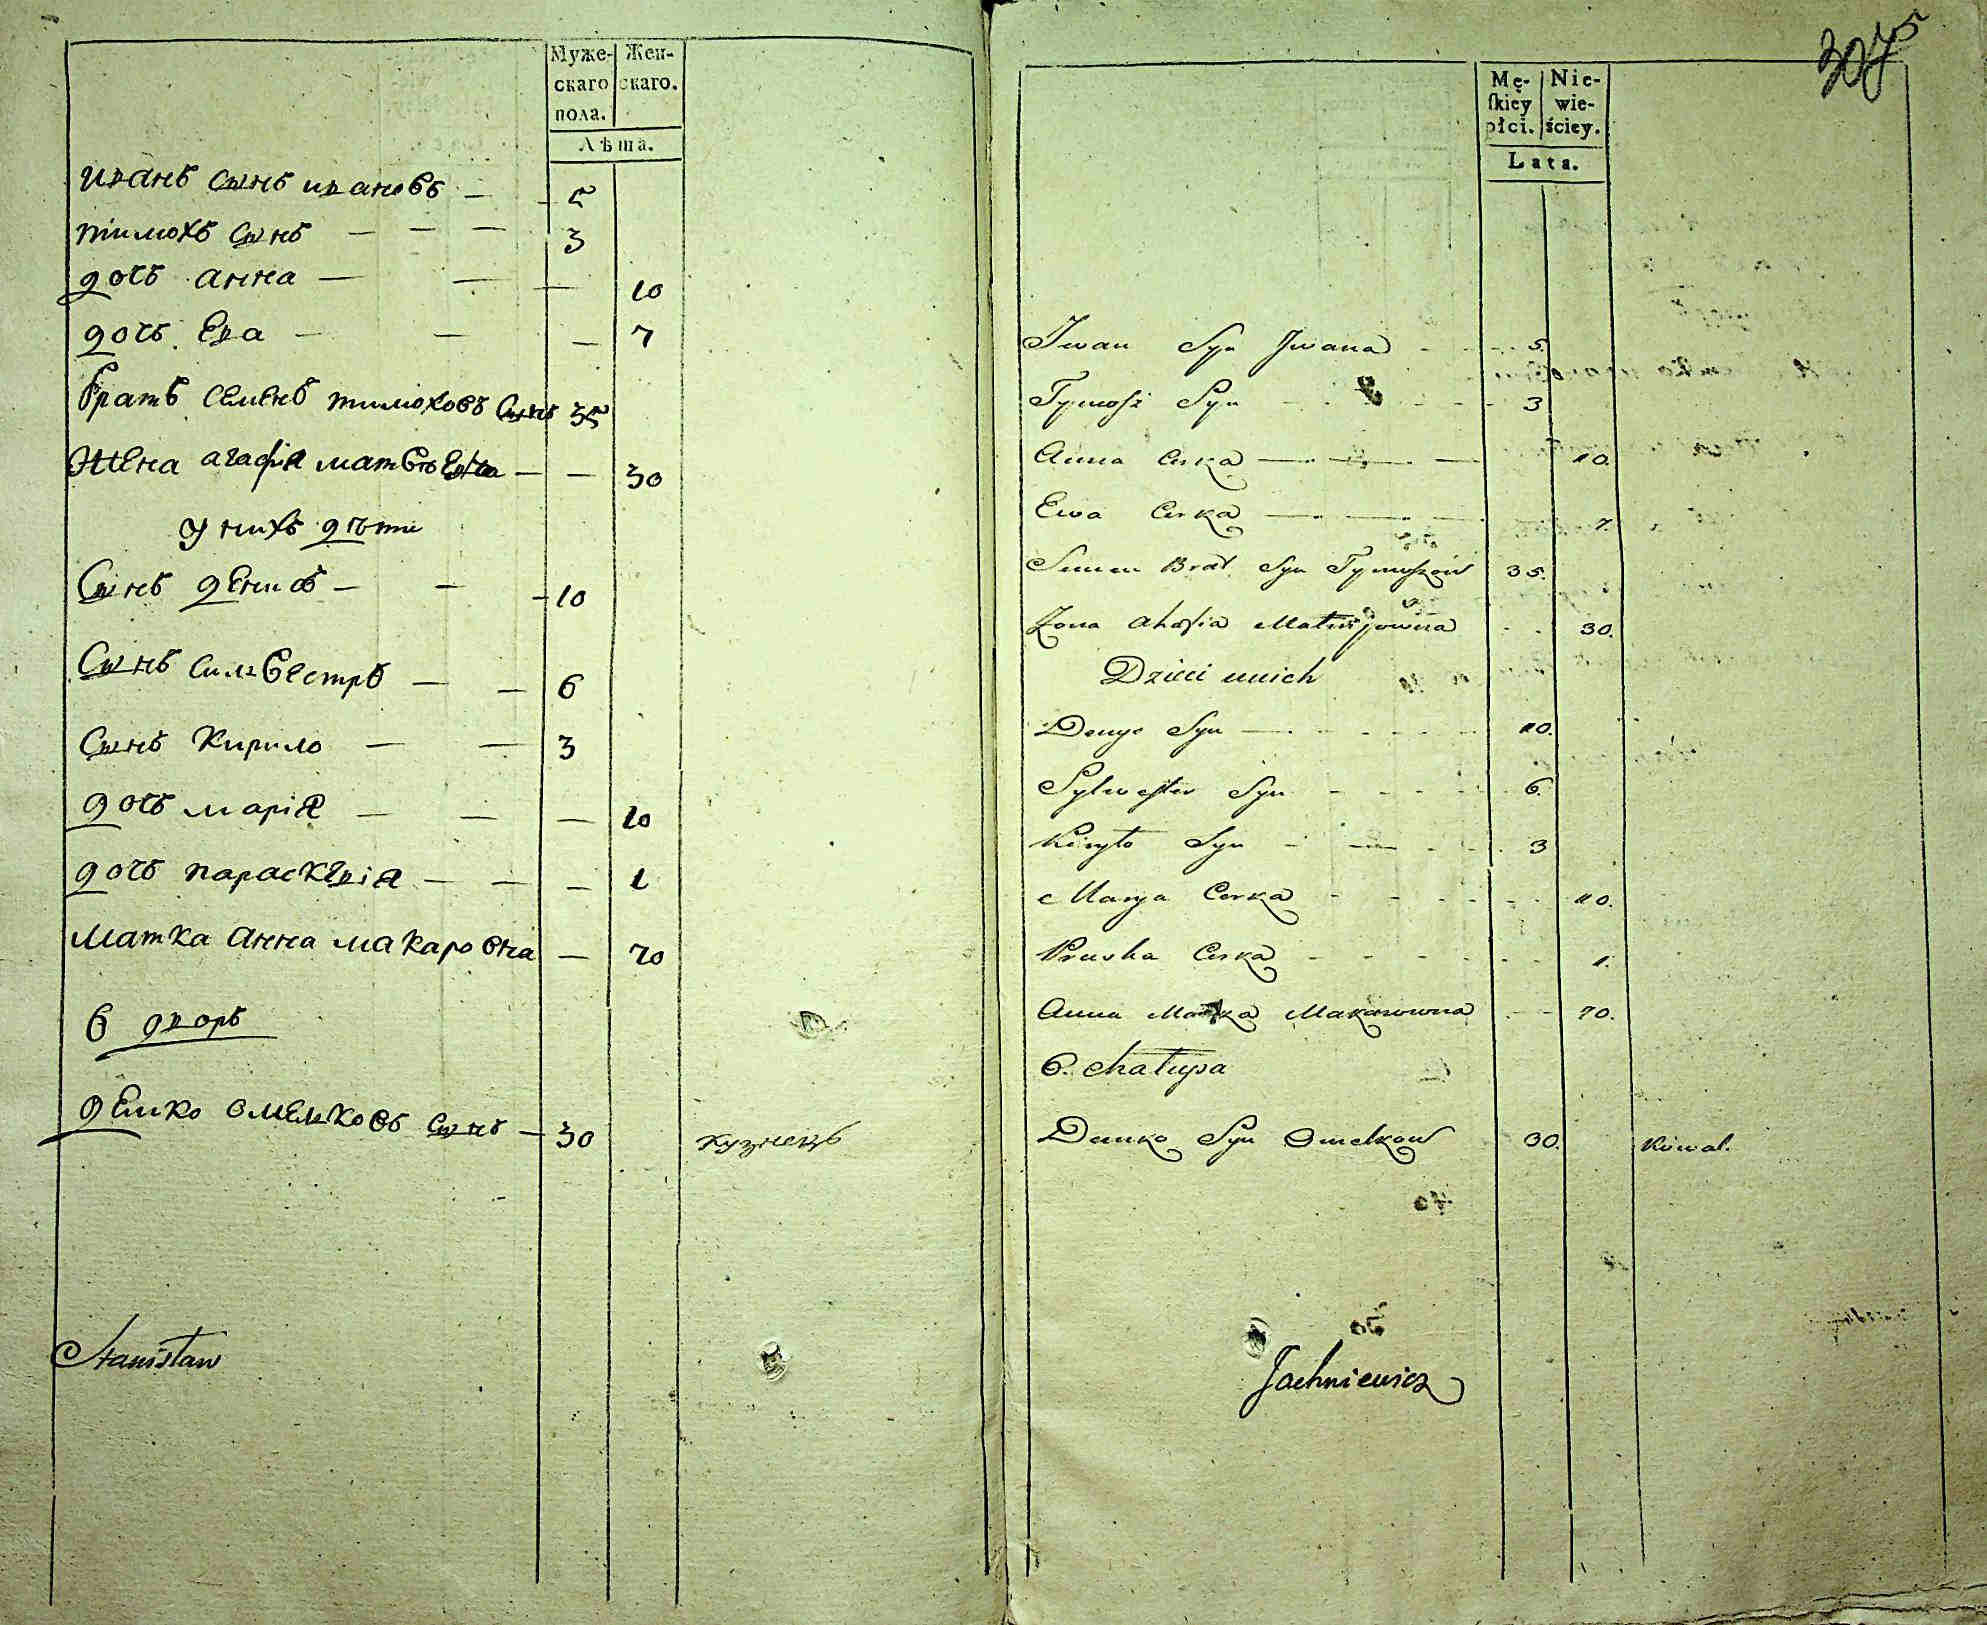 Муже- Жен-
скаго скаго.
пола.
Лѣта.
иванъ сынъ ивановъ — — 5
тимохъ сынъ — — — 3
дочъ анна — — — 10
дочъ Ева — — — 7
братъ семенъ тимоховъ сынъ 35
жена агафія матвѣевна — — 30
у нихъ дѣти
сынъ денисъ — — — 10
сынъ силвестръ — — 6
сынъ кирило — — 3
дочъ марія — — — 10
дочъ параскевія — — — 1
матка анна макаровна — 70
6 дворъ
демко омелковъ сынъ — 30 кузнецъ
Stanisław
3075
Mę- Nie-
skiey wie-
płci. ściey.
Lata.
Iwan Syn Jwana 5.
Tymosz Syn 3
Anna Curka 10.
Ewa Curka 7.
Semen Brat Syn Tymoszow 35.
Zona Ahafia Matwijowna 30.
Dzieci unich
Denys Syn 10.
Sylwester Syn 6.
Kiryło Syn 3
Marya Corka 10.
Pruska Curka 1.
Anna Matka Makarowna 70.
6. chałupa
Demko Syn Omelkow 30. Kowal.
Jachniewicz